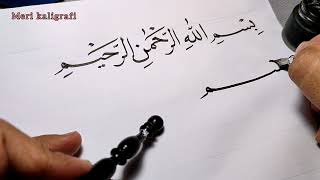 Meri kaligrafi
بِسْمِ اللهِ الرَّحْمٰنِ الرَّحِيْمِ
بسم